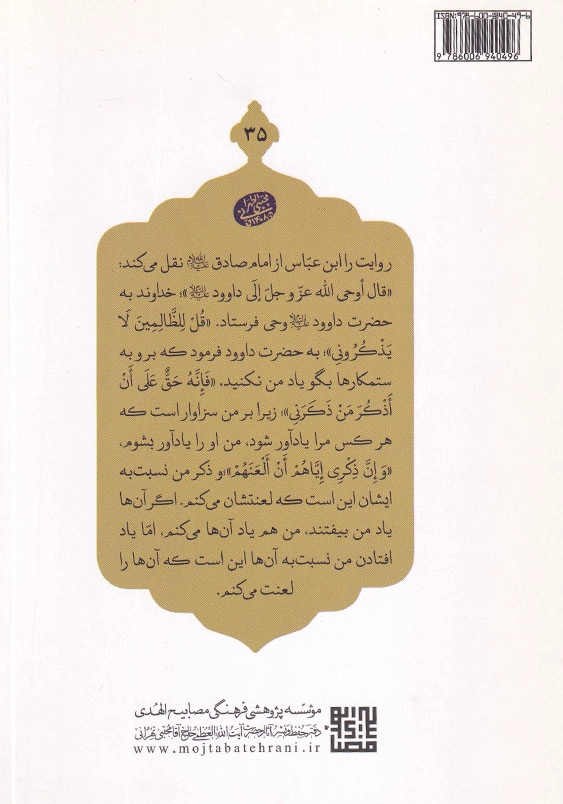 ISBN:978-600-6940-49-6
9 786006 940496
۳۵
روایت را ابن عبّاس از امام صادق علیه‌السلام نقل می‌کند:
«قال أوحی الله عزّ و جلّ إلَی داوود علیه‌السلام»؛ خداوند به
حضرت داوود علیه‌السلام وحی فرستاد. «قُلْ لِلظَّالِمِینَ لَا
یَذْکُرُونِی»؛ به حضرت داوود فرمود که برو به
ستمکارها بگو یاد من نکنید، «فَإِنَّهُ حَقٌّ عَلَی أَنْ
أَذْکُرَ مَنْ ذَکَرَنِی»؛ زیرا بر من سزاوار است که
هر کس مرا یادآور شود، من او را یادآور بشوم،
«وَ إِنَّ ذِکْرِی إِیَّاهُمْ أَنْ أَلْعَنَهُمْ»؛ و ذکر من نسبت به
ایشان این است که لعنتشان می‌کنم. اگر آن‌ها
یاد من بیفتند، من هم یاد آن‌ها می‌کنم، امّا یاد
افتادن من نسبت‌به آن‌ها این است که آن‌ها را
لعنت می‌کنم.
مؤسّسه پژوهشی فرهنگی مصابیح الهُدی
دفتر حفظ و نشر آثار حضرت آیت الله العظمی حاج آقا مجتبی تهرانی
www.mojtabatehrani.ir